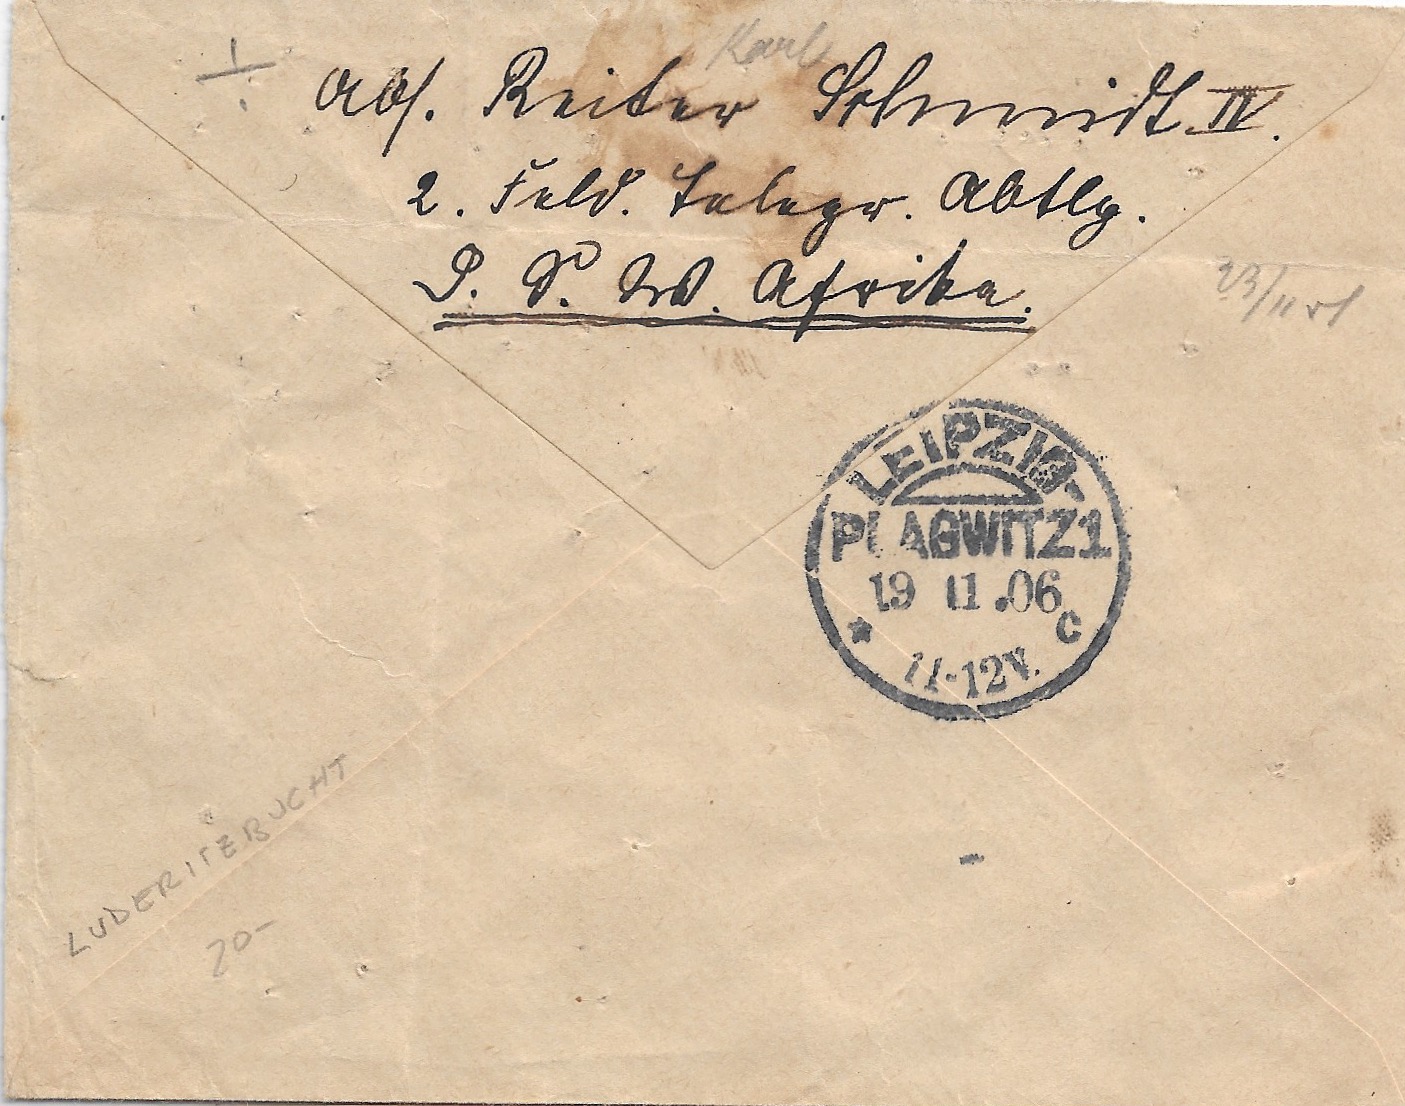 Karl
Abs. Reiter Schmidt IV.
2. Feld. Telegr. Abtlg.
D. S. W. Afrika.
LEIPZIG-
PLAGWITZ 1
19 11.06
* C
11-12V.
LUDERITZBUCHT
20-